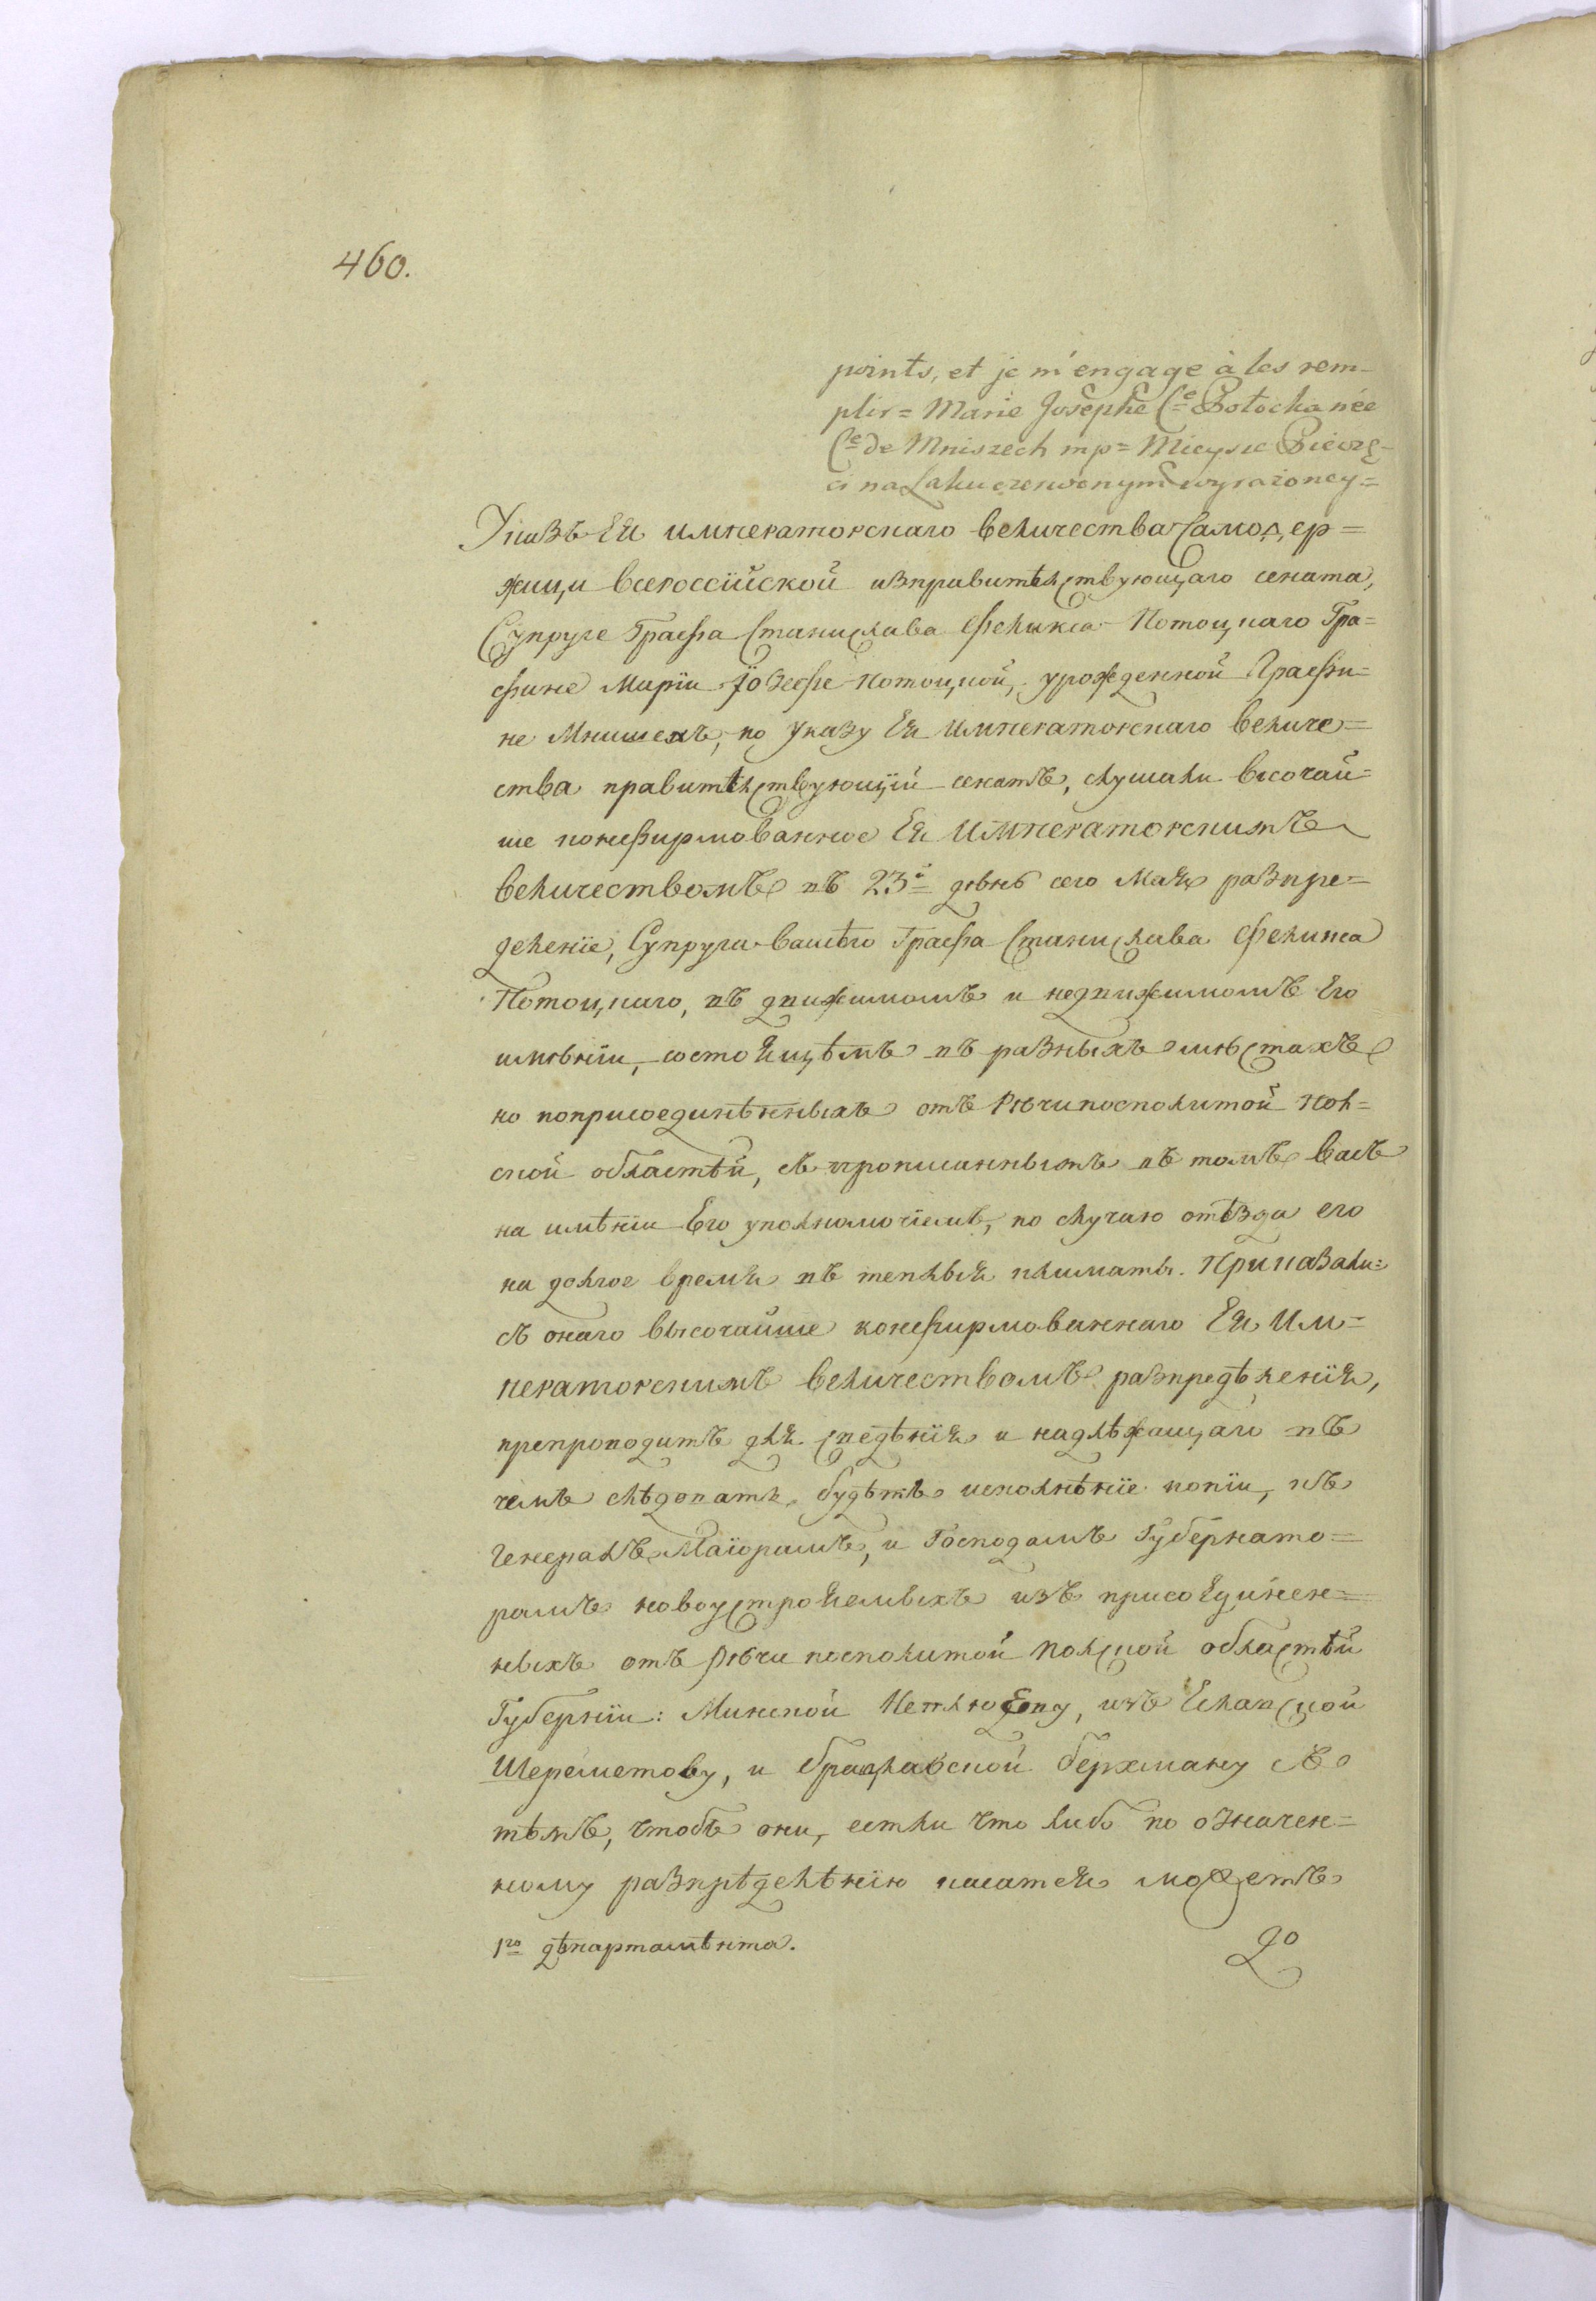 460.
points, et je m'engage à les rem-
plir = Marie Josephe C<sup>e</sup> Potocka née
C<sup>e</sup> de Mniszech mp = Mieysce Pieczę-
ci na Laku czerwonym wyrażoney =
Указъ Ея императорскаго величества самодер=
жицы всероссїйской изправительствующаго сената,
Супруге Графа Станислава Феликса Потоцкаго Гра=
фине Марїи Їозефе потоцкой, урожденной Графи=
не Мнишехъ, по указу Ея Императорскаго величе=
ства правительствующїй сенатъ, слушали высочай=
ше конфирмованное Ея Императорскимъ
величествомъ въ 23<sup>й</sup> день сего Мая разпре=
деленїе, Супруга вашего Графа Станислава Феликса
Потоцкаго, въ движимомъ и недвижимомъ Его
имѣнїи, состоящемъ въ разныхъ мѣстахъ
но воприсоединенныхъ отъ Рѣчипосполитой пол=
ской областей, съ прописаннымъ въ томъ васъ
на имѣнїи Его уполномочїемъ, по случаю отъѣзда его
на долгое время въ теплыя климаты. Приказали=
съ онаго высочайше конфирмованнаго Ея Им=
ператорскимъ величествомъ разпределенїя,
препроводитъ для сведенїя и надлежащаго въ
чемъ следовать будетъ исполненїе копїи, къ
Генералъ Маїорамъ, и Господамъ Губернато=
рамъ новоустрояемыхъ изъ присоядинен=
ныхъ отъ рѣчи посполитой полской областей
Губернїи: Минской Неплюеву, изъ Еславской
Шереметову, и браславской берхману съ
темъ, чтобъ они, естли что либо по означен=
ному разпределенїю касатся можетъ
1<sup>го</sup> департамента. до